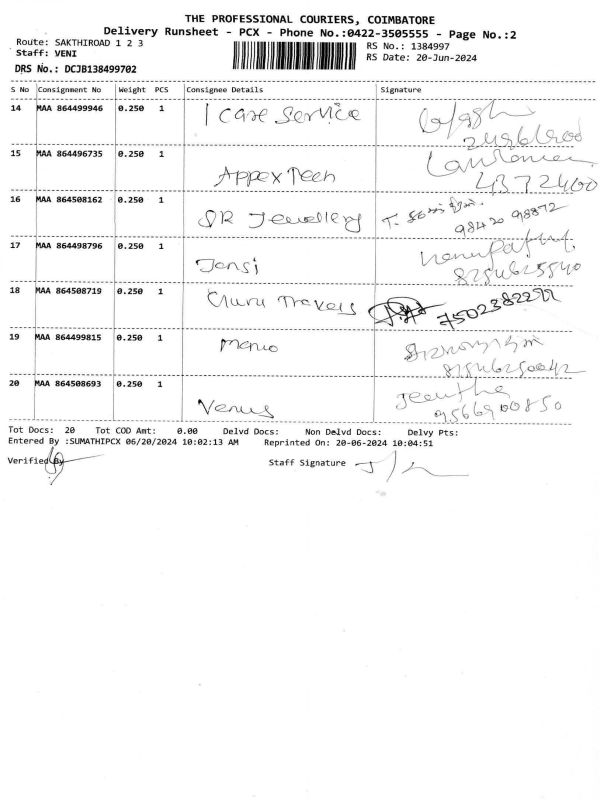 THE PROFESSIONAL COURIERS, COIMBATORE
Delivery Runsheet - PCX - Phone No.:0422-3505555 - Page No.:2
Route: SAKTHIROAD 1 2 3
RS No.: 1384997
Staff: VENI
RS Date: 20-Jun-2024
DRS No.: DCJB138499702
S No Consignment No Weight PCS Consignee Details Signature
14 MAA 864499946 0.250 1 I Care Service
15 MAA 864496735 0.250 1 Appex Tech
4372400
16 MAA 864508162 0.250 1 SR Jewellery
98420 98872
17 MAA 864498796 0.250 1 Jansi
18 MAA 864508719 0.250 1 Guru Travels
7502382299
19 MAA 864499815 0.250 1
20 MAA 864508693 0.250 1 Venus
9566900850
Tot Docs: 20 Tot COD Amt: 0.00 Delvd Docs: Non Delvd Docs: Delvy Pts:
Entered By :SUMATHIPCX 06/20/2024 10:02:13 AM Reprinted On: 20-06-2024 10:04:51
Verified By
Staff Signature